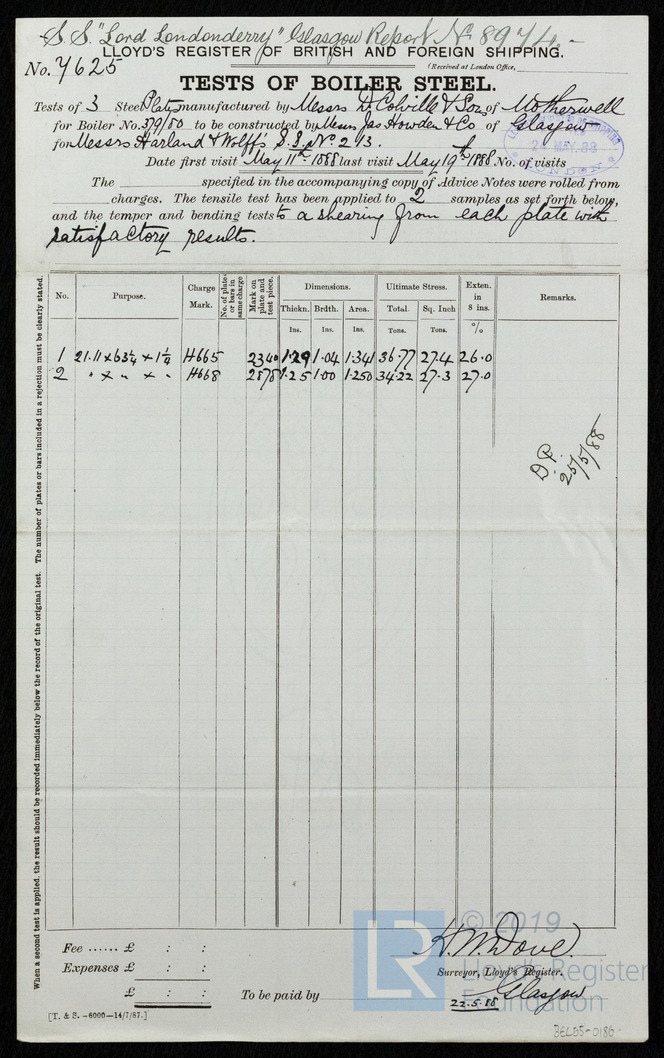 S.S. "Lord Londonderry" Glasgow Report No 8974.-
LLOYD'S REGISTER OF BRITISH AND FOREIGN SHIPPING.
No. 7625
(Received at London Office,
TESTS OF BOILER STEEL.
Tests of 3 Steel Plates manufactured by Messrs D. Colville & Sons of Motherwell
for Boiler No. 379/80 to be constructed by Messrs Jas Howden & Co of Glasgow
for Messrs Harland & Wolff's S.S. No. 213.
Date first visit May 11th 1888 last visit May 19th 1888 No. of visits
The specified in the accompanying copy of Advice Notes were rolled from
charges. The tensile test has been applied to 2 samples as set forth below,
and the temper and bending tests to a shearing from each plate with
satisfactory results.
No. Purpose. Charge Mark. No. of plates or bars in same charge Mark on plate and test piece. Dimensions. Ultimate Stress. Exten. in 8 ins. Remarks.
Thickn. Brdth. Area. Total. Sq. Inch
Ins. Ins. Ins. Tons. Tons. %
1 21.11 x 63¼ x 1¼ H665 2340 1.29 1.04 1.341 36.77 27.4 26.0
2 " x " x " H668 2878 1.25 1.00 1.250 34.22 27.3 27.0
D.P.
25/5/88
When a second test is applied, the result should be recorded immediately below the record of the original test. The number of plates or bars included in a rejection must be clearly stated.
Fee ...... £ : :
Expenses £ : :
£ : :
To be paid by
H. M. Dove.
Surveyor, Lloyd's Register.
22.5.88 Glasgow
[T. & S. -6000-14/7/87.]
LR
© 2019
Lloyd's Register
Foundation
BELD5-0186-